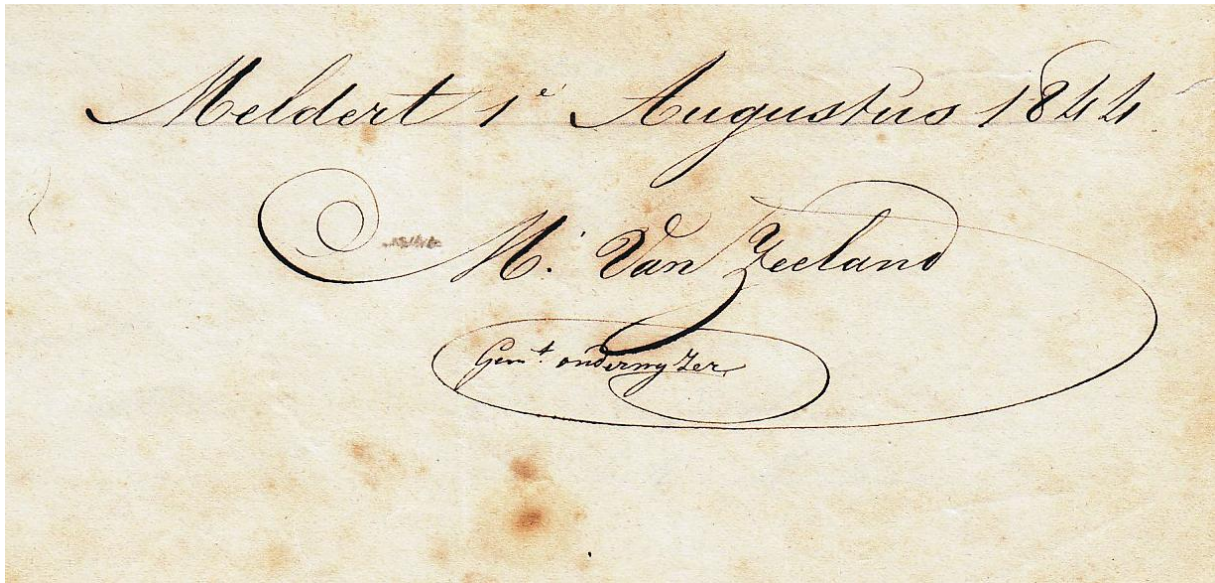 Meldert 1e Augustus 1844
M. Van Zeeland
Gemt. onderwyzer